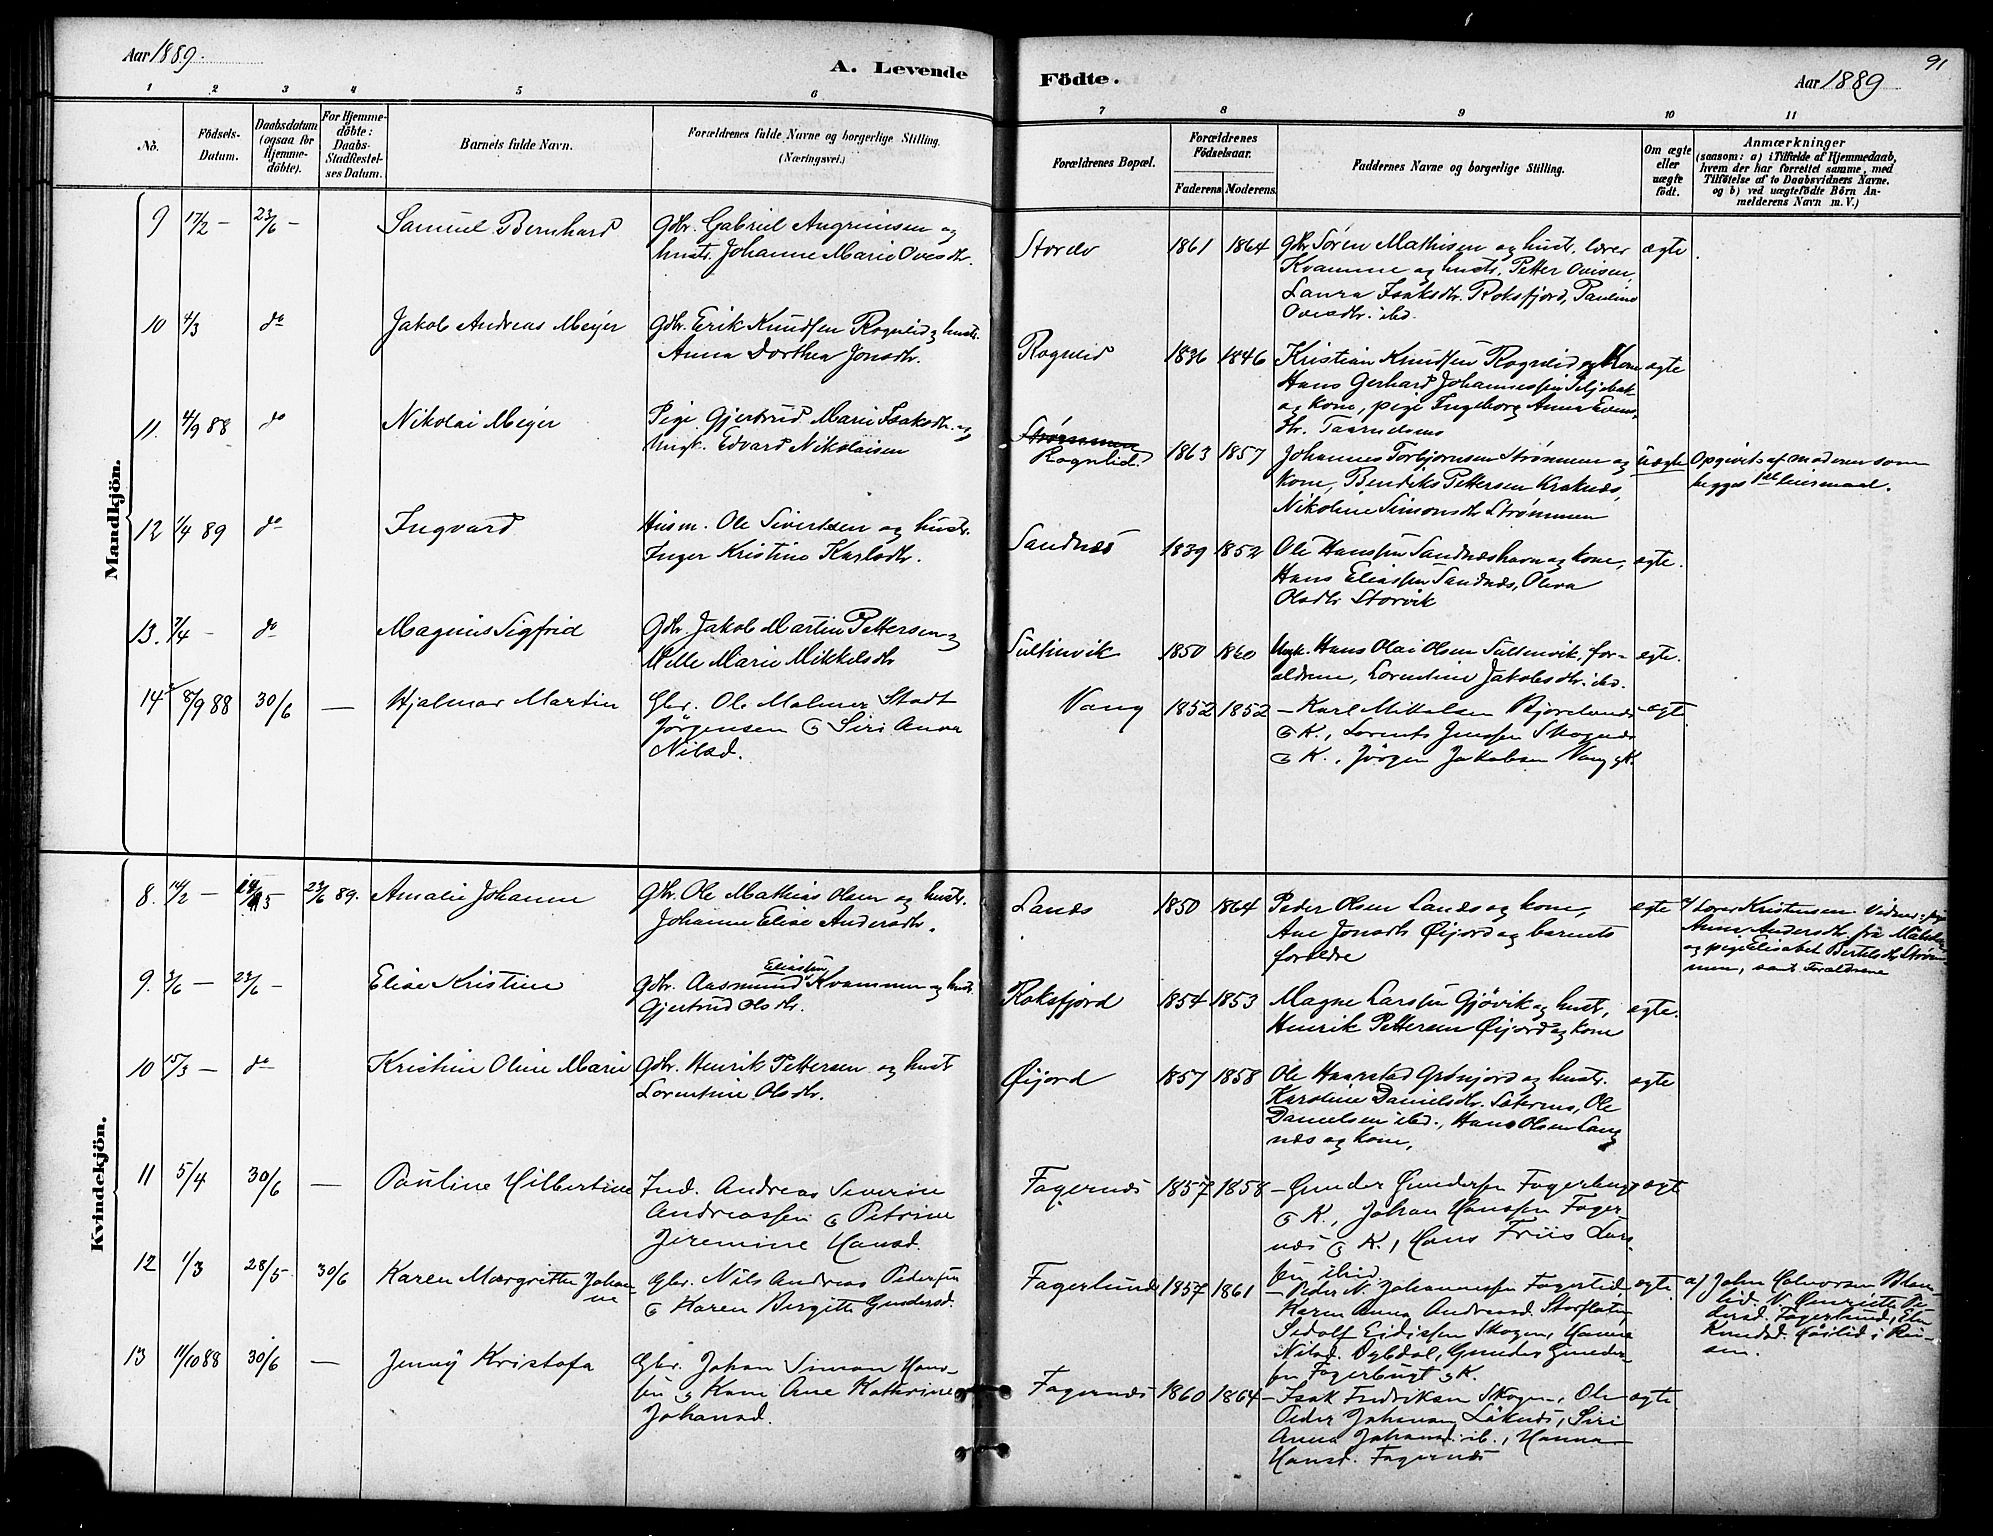 Aar 1889.
A. Levende
Födte.
Aar 1889
91
1 2 3 4 5 6 7 8 9 10 11
No.
Födsels-
Datum.
Daabsdatum
(ogsaa for
Hjemme-
döbte).
For Hjemme-
döbte:
Daabs-
Stadfæstel-
ses Datum.
Barnets fulde Navn.
Forældrenes fulde Navne og borgerlige Stilling.
(Næringsvei.)
Forældrenes Bopæl.
Forældrenes
Födselsaar.
Faderens Moderens.
Faddernes Navne og borgerlige Stilling.
Om ægte
eller
uægte
födt.
Anmærkninger
(saasom: a) i Tilfælde af Hjemmedaab,
hvem der har forrettet samme, med
Tilföielse af to Daabsvidners Navne.
og b) ved uægtefödte Börn An-
melderens Navn m. V.)
Mandkjön.
9 17/2 — 23/6 — Samuel Bernhard
Gbr. Gabriel Angrimsen og
hustr. Johanne Marie Ovesdtr.
1861 1864
gbr Søren Mathisen og hust. lærer
Kvamme og hustr. Petter Ovesen,
Laura Isaksdtr. Roksfjord, Pauline
Ovesdtr. ibd.
ægte
10 4/3 do Jakob Andreas Meyer
Gbr. Erik Knudsen Rognlid og hustr.
Anna Dorthea Jonsdtr.
Rognlid 1836 1846
Kristian Knudsen Rognlid og Kone
Hans Gerhard Johannessen Seljebak
og kone, pige Ingeborg Anna Evens-
dtr.
ægte
11. 4/9 88 do Nikolai Meyer
Pige Gjertrud Marie Isaksdtr. og
Ungk. Edvard Nikolaisen
Strømmen
Rognlid. 1863 1857
Johannes Torbjørnsen Strømmen og
kone, Bendiks Pettersen Kraknæs,
Nikoline Simonsdtr Strømmen
uægte
Opgivet af moderen som
begges 1ste leiermaal.
12 1/4 89 do Ingvard
Husm. Ole Sivertsen og hustr.
Inger Kristine Karlsdtr.
Sandnæs 1839 1852
Ole Hanssen Sandnæshavn og kone,
Hans Eliassen Sandnæs, Oleva
Olsdtr Storvik
ægte.
13. 7/4 - do Magnus Sigfrid
Gbr. Jakob Martin Pettersen og
Mille Marie Mikkelsdtr
Sultinvik 1850 1860
Ungk. Hans Olai Olsen Sultenvik, for-
ældrene, Lorentine Jakobsdtr. ibd.
ægte.
14 8/9 88 30/6 — Hjalmar Martin
Gbr. Ole Malmer Stadt
Jørgensen & Siri Anna
Nilsd.
Vang 1852 1852
— Karl Mikalsen Bjorelvnæs
& K., Lorents Jenssen Skognæs
& K., Jörgen Jakobsen Vang & K.
ægt
Kvindekjön.
8. 14/2 — 23/6 89. Amalie Johanne
Gbr. Ole Mathias Olsen og hustr.
Johanne Elise Andersdtr.
Lanæs 1850 1864
Peder Olsen Lanæs og kone,
Ane Jonsdtr Øijord og barnets
forældre
ægte
a) Lærer Kristensen. Vidner: pige
Anne Andersdtr. fra
og pige Elisabet Bertelsdtr Strøm-
men, samt Forældrene
9. 3/6 — 23/6 — Elise Kristine
Eliassen
Gbr. Aasmund Kvammen og hustr.
Gjertrud Olsdtr.
Roksfjord 1854 1853
Magne Larssen Gjövik og hustr,
Henrik Pettersen Øijord og kone
ægte.
10 15/3 — do Kristine Oline Marie
Gbr. Henrik Pettersen og hust
Lorentine Olsdtr.
Øijord 1857 1858
Ole Haarstad Grønjord og hustr.
Karoline Danielsdtr. Sæternes, Ole
Danielsen ibd., Hans Olsen Lang
næs og kone,
ægte
11 5/4 30/6 — Pauline Hilbertine
Ind. Andreas Severin
Andreassen & Petrine
Jeremine Hansd.
Fagernæs 1857 1858
— Gunder Gundersen Fagerbugt
& K., Johan Hanssen Fager-
næs & K., Hans Friis Lars-
sen ibid.
ægt
12 1/3 28/5 30/6 Karen Margrithe Johan-
ne
Gbr. Nils Andreas Pedersen
& Karen Birgitte Gundersd.
Fagerlund 1857 1861
— Peder N. Johannessen Fagerlid,
Karen Anna Andreasd. Storflaten,
Sedolf Eidissen Skogen, Hanna
Nilsd. Dybdal, Gunder Gunder-
sen Fagerbugt & K.
ægte.
a) John Halvorsen
lid. V. Henriette Pe-
dersd. Fagerlund, Elen
Knudsd.
sen.
13 11/10 88 30/6 — Jenny Kristofa
Gbr. Johan Simon Hans-
sen & Kone Ane Kathrine
Johansd.
Fagernæs 1860 1864
— Isak Fredriksen Skogen, Ole
Peder Johansen Löknæs, Siri
Anna Johansd. ib., Hanna
Hansd. Fagernæs
ægte